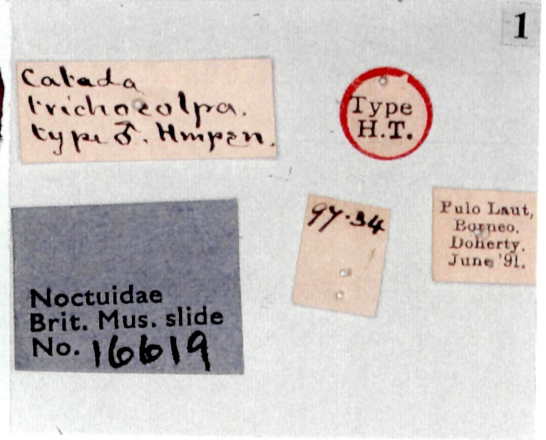 1
Catada
trichocolpa.
type ♂. Hmpsn.
Type
H.T.
97·34
Pulo Laut,
Borneo.
Doherty.
June '91.
Noctuidae
Brit. Mus. slide
No. 16619